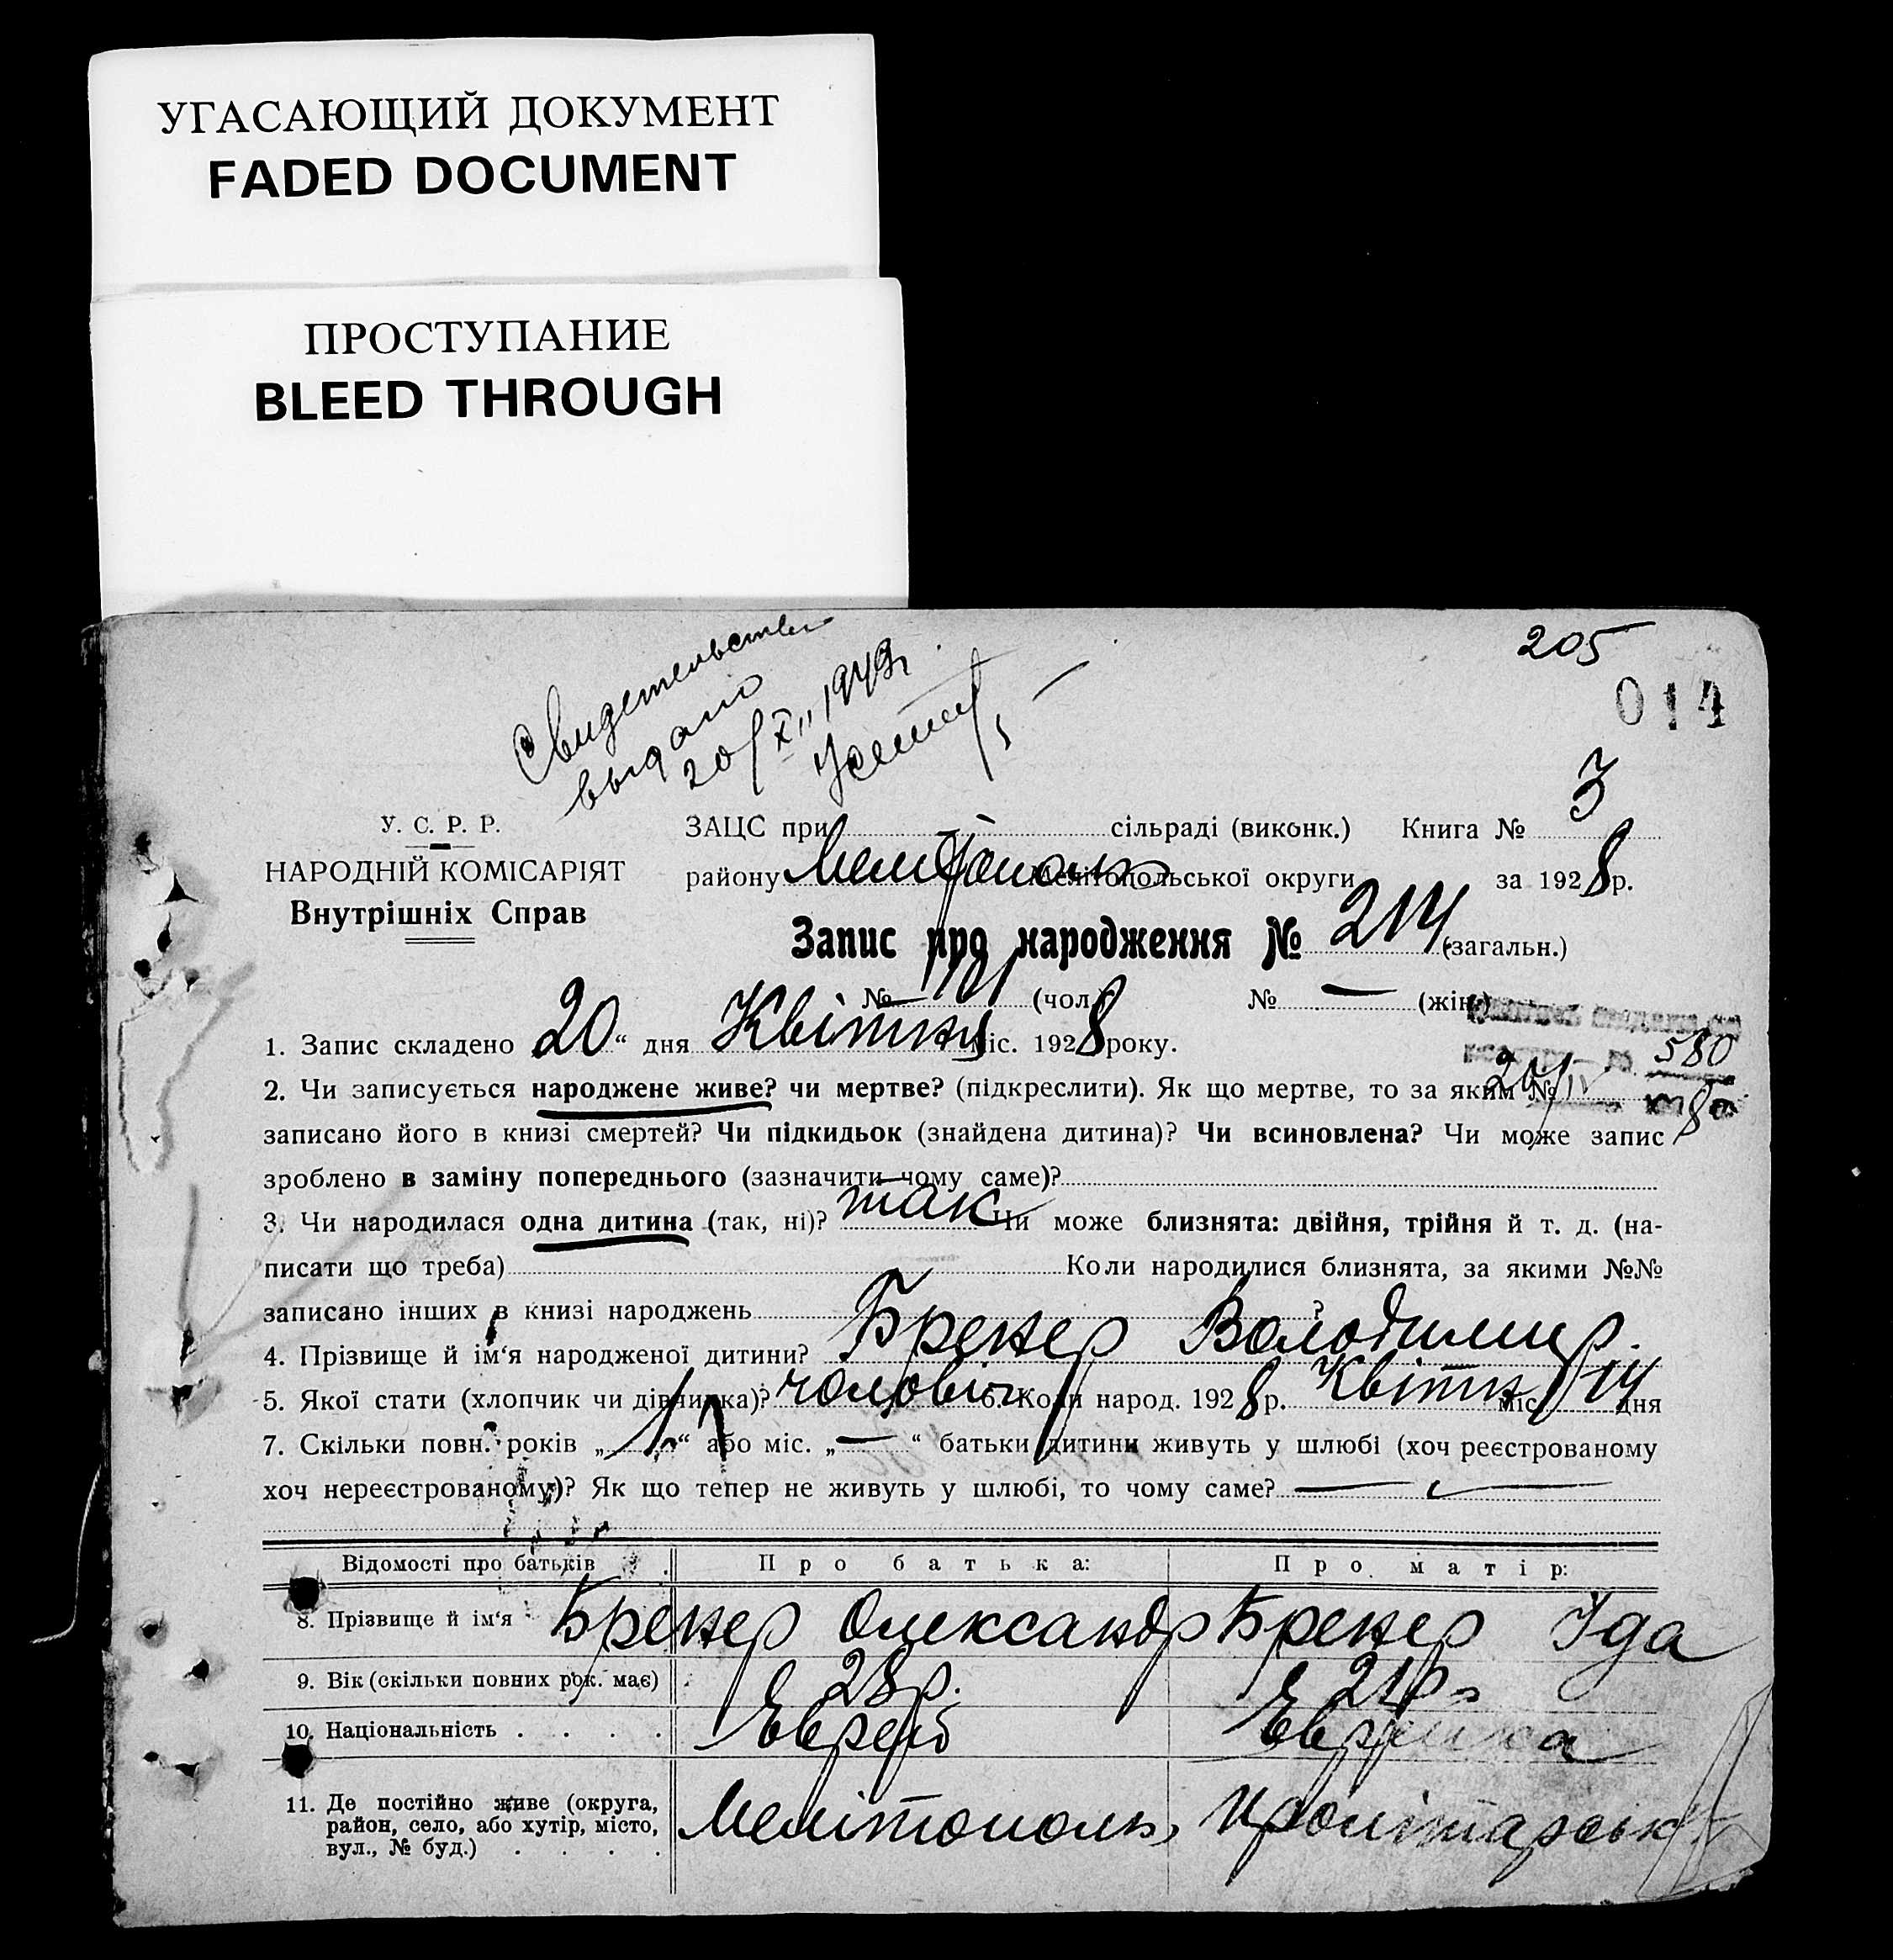 УГАСАЮЩИЙ ДОКУМЕНТ
FADED DOCUMENT
ПРОСТУПАНИЕ
BLEED THROUGH
205
014
Свидетельство
выдано
20/XII 1943г
У. С. Р. Р.
НАРОДНІЙ КОМІСАРІЯТ
Внутрішніх Справ
ЗАЦС при сільраді (виконк.) Книга № 3
району Мелітополь Мелітопольської округи за 1928 р.
Запис про народження № 214 (загальн.)
№ 121 (чол.) № — (жін.)
1. Запис складено 20 “ дня Квітня міс. 1928 року.
580
2. Чи записується народжене живе? чи мертве? (підкреслити). Як що мертве, то за яким №
записано його в книзі смертей? Чи підкидьок (знайдена дитина)? Чи всиновлена? Чи може запис
зроблено в заміну попереднього (зазначити чому саме)?
3. Чи народилася одна дитина (так, ні)? так Чи може близнята: двійня, трійня й т. д. (на-
писати що треба) Коли народилися близнята, за якими №№
записано інших в книзі народжень ?
4. Прізвище й ім‘я народженої дитини? Бренер Володимир.
5. Якої стати (хлопчик чи дівчинка)? чоловіч 6. Коли народ. 1928 р. Квітня міс. 14 дня
7. Скільки повн. років „ 1 “ або міс. „ — “ батьки дитини живуть у шлюбі (хоч реєстрованому
хоч нереєстрованому)? Як що тепер не живуть у шлюбі, то чому саме? —
Відомості про батьків Про батька: Про матір:
8. Прізвище й ім‘я Бренер Олександр Бренер Іда
9. Вік (скільки повних рок. має) 28 р. 21 р.
10. Національність . . . . Єврей Єврейка
11. Де постійно живе (округа,
район, село, або хутір, місто,
вул., № буд.) . . . . Мелітополь, Пролітарськ